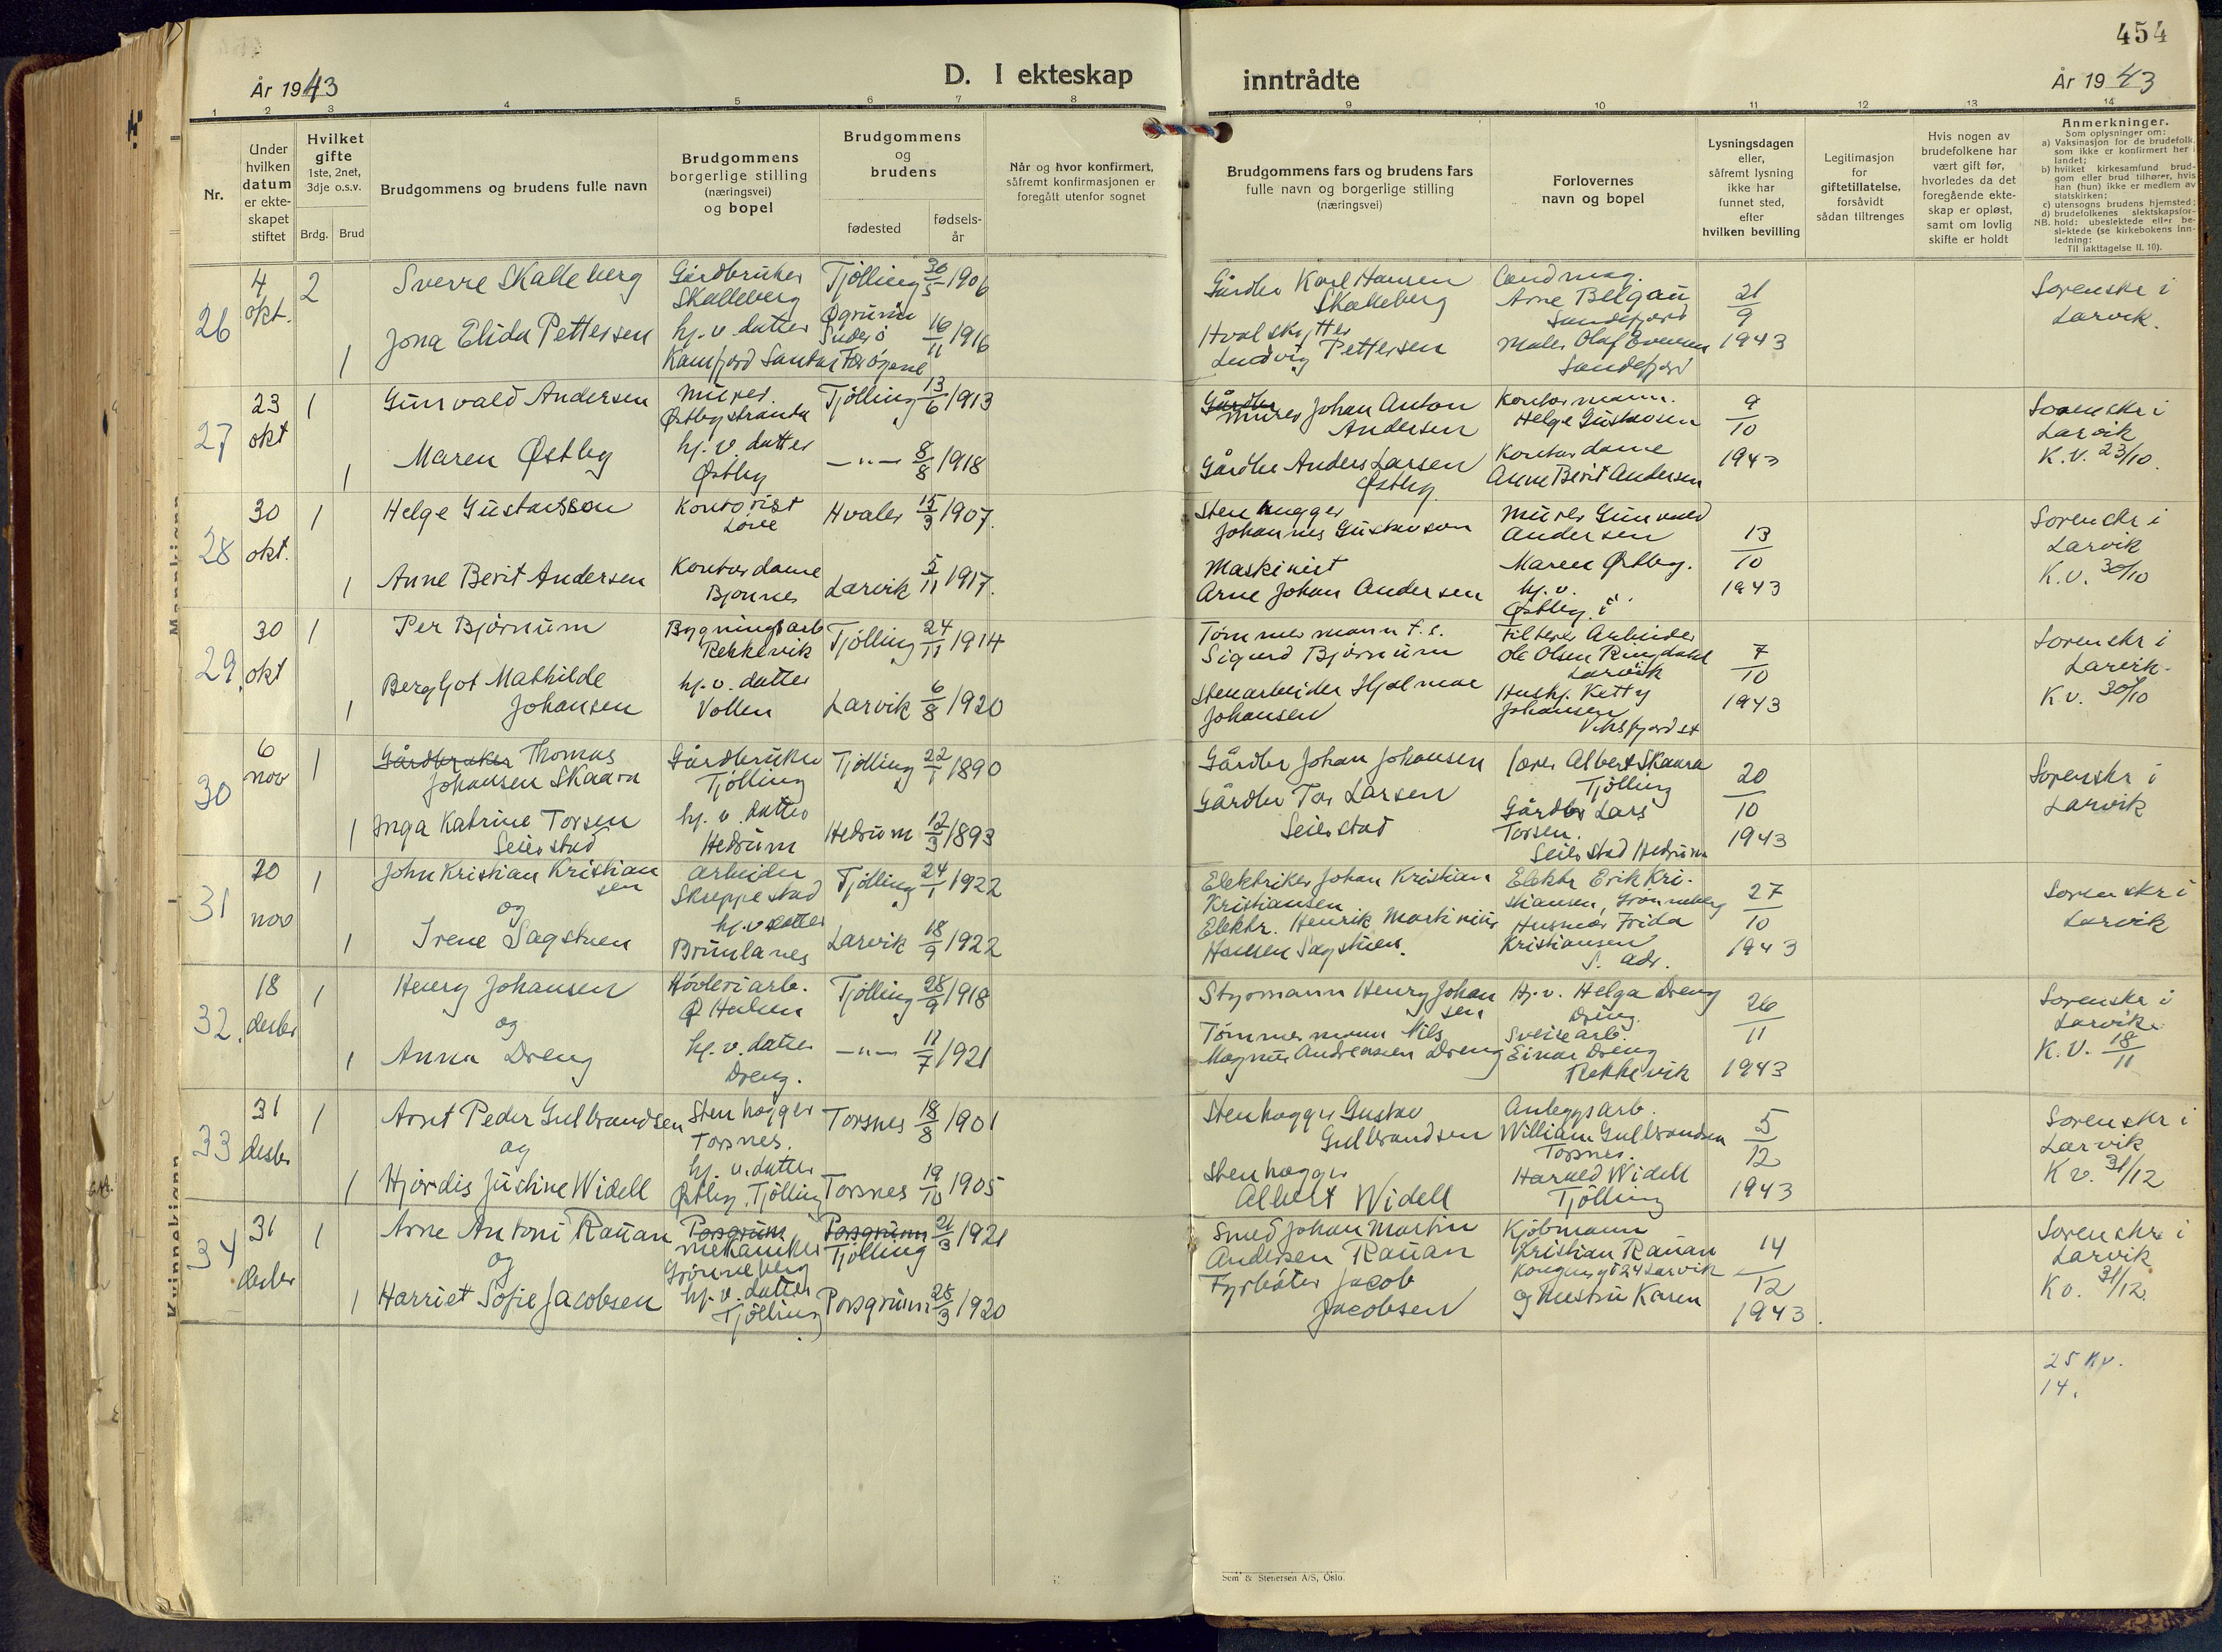 454
År 1943
D. I ekteskap
inntrådte
År 1943
1 2 3 4 5 6 7 8 9 10 11 12 13 14
Nr.
Under
hvilken
datum
er ekte-
skapet
stiftet
Hvilket
gifte
1ste, 2net,
3dje o.s.v.
Brdg. Brud
Brudgommens og brudens fulle navn
Brudgommens
borgerlige stilling
(næringsvei)
og bopel
Brudgommens
og
brudens
fødested
fødsels-
år
Når og hvor konfirmert,
såfremt konfirmasjonen er
foregått utenfor sognet
Brudgommens fars og brudens fars
fulle navn og borgerlige stilling
(næringsvei)
Forlovernes
navn og bopel
Lysningsdagen
eller,
såfremt lysning
ikke har
funnet sted,
efter
hvilken bevilling
Legitimasjon
for
giftetillatelse,
forsåvidt
sådan tiltrenges
Hvis nogen av
brudefolkene har
vært gift før,
hvorledes da det
foregående ekte-
skap er opløst,
samt om lovlig
skifte er holdt
Anmerkninger.
Som oplysninger om:
a) Vaksinasjon for de brudefolk,
som ikke er konfirmert her i
landet;
b) hvilket kirkesamfund brud-
gom eller brud tilhører, hvis
han (hun) ikke er medlem av
statskirken;
c) utensogns brudens hjemsted;
d) brudefolkenes slektskapsfor-
NB. hold: ubeslektede eller be-
slektede (se kirkebokens Inn-
ledning:
Til iakttagelse II. 10).
26
4
okt.
2
Sverre Skalleberg
Gårdbruker
Skalleberg
Tjølling 30/5 1906
1
Jona Elida Pettersen
hj. v. datter
Kamfjord Sandar
Suderø
Færøyene
16/11 1916
Gårdbr Karl Hansen
Skalleberg
Hvalskytter
Ludvig Pettersen
Cand mag.
Arne Belgau
Sandefjord
Maler Olaf
Sandefjord
21/9
1943
Sorenskr i
Larvik.
27
23
okt
1
Gunvald Andersen
Murer.
Østbystranda
Tjølling 13/6 1913
1
Maren Østby
hj. v. datter
Østby
—"— 8/8 1918
Gårdbr
Murer Johan Anton
Andersen
Gårdbr Anders Larsen
Østby
Kontormann.
Helge Gustavsen
Kontordame
Anne Berit Andersen
9/10
1943
Sorenskr i
Larvik
K.V. 23/10.
28
30
okt.
1
Helge Gustavsson
Kontorist
Løve
Hvaler 15/3 1907.
1
Anne Berit Andersen
Kontordame
Bjønnes
Larvik 5/11 1917.
Stenhugger
Johannes Gustavson
Maskinist
Arne Johan Andersen
Murer Gunvald
Andersen
Maren Østby.
hj. v.
Østby.
13/10
1943
Sorenskr i
Larvik
K.V. 30/10
29.
30
okt
1
Per Bjørnum
Bygningsarb
Rekkevik
Tjølling 24/11 1914
1
Bergljot Mathilde
Johansen
hj. v. datter
Vollen
Larvik 6/8 1920
Tømmermann f. s.
Sigurd Bjørnum
Stenarbeider Hjalmar
Johansen
Arbeider
Ole Olsen Ringdahl
Larvik
Hushj. Ketty
Johansen
Viksfjord st
7/10
1943
Sorenskr i
Larvik.
K v. 30/10
30
6
nov
1
Gårdbruker Thomas
Johansen Skaara
Gårdbruker
Tjølling
Tjølling 22/1 1890
1
Inga Katrine Torsen
Seierstad
hj. v. datter
Hedrum
Hedrum 12/3 1893
Gårdbr Johan Johansen
Gårdbr Tor Larsen
Seierstad
Lærer Albert Skaara
Tjølling
Gårdbr Lars
Torsen.
Seierstad Hedrum
20/10
1943
Sorenskr i
Larvik
31
20
nov
1
John Kristian Kristian
sen
og
Arbeider
Skreppestad
Tjølling 24/1 1922
1
Irene Sagstuen
hj. v datter
Brunlanes
Larvik 18/9 1922
Elektriker Johan Kristian
Kristiansen
Elektr. Henrik Martinius
Hansen Sagstuen.
Elektr Erik Kri-
stiansen, Grønneberg
Husmor Frida
Kristiansen
S. adr.
27/10
1943
Sorenskr i
Larvik
32.
18
desbr
1
Henry Johansen
og
Høvleriarb.
Ø Halsen
Tjølling 28/9 1918
1
Anna Dreng
hj. v. datter
Dreng.
—"— 11/7 1921
Styrmann Henry Johan
sen
Tømmermann Nils
Magnus Andreasen Dreng
Hj. v. Helga Dreng
Dreng.
Sveisearb.
Einar Dreng
Rekkevik
26/11
1943
Sorenskr i
Larvik.
K.V. 18/11
33
31
desbr
1
Arnt Peder Gulbrandsen
og
Stenhogger
Torsnes.
Torsnes 18/8 1901
1
Hjørdis Justine Widell
hj. v. datter
Østby, Tjølling
Torsnes 19/10 1905
Stenhogger Gustav
Gulbrandsen
Stenhogger
Albert Widell
Anleggsarb.
William Gulbrandsen
Torsnes.
Harald Widell
Tjølling
5/12
1943
Sorenskr i
Larvik
K v. 31/12
34
31
desbr
1
Arne Antoni Rauan
og
Porsgrunn
mekaniker
Grønneberg
Porsgrunn
Tjølling
21/3 1921
1
Harriet Sofie Jacobsen
hj. v. datter
Tjølling
Porsgrunn 28/3 1920
Smed Johan Martin
Andersen Rauan
Fyrbøter Jacob
Jacobsen
Kjøbmann
Kristian Rauan
Kongensgt 24 Larvik
og hustru Karen
14/12
1943.
Sorenskr i
Larvik
K v. 31/12.
25 Kv.
14.
Mannkjønn
Kvinnekjønn
Sem & Stenersen A/S, Oslo.